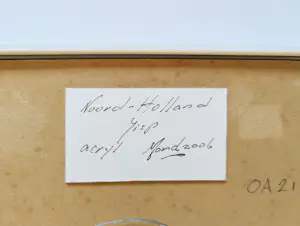 Noord-Holland
Jisp
acryl Mond2006
OA 21